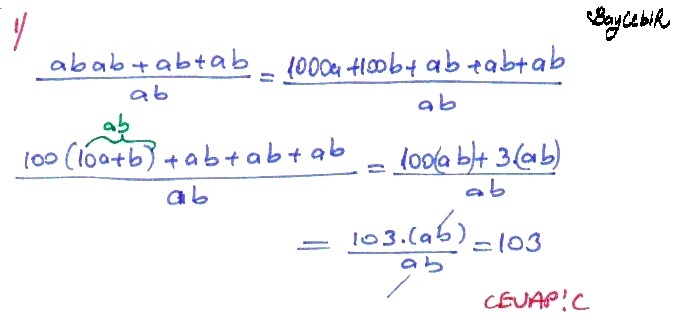 BayCebiR
1/
abab + ab + ab / ab = 1000a + 100b + ab + ab + ab / ab
ab
100 (10a+b) + ab + ab + ab / ab = 100(ab) + 3.(ab) / ab
= 103.(ab) / ab = 103
CEVAP: C